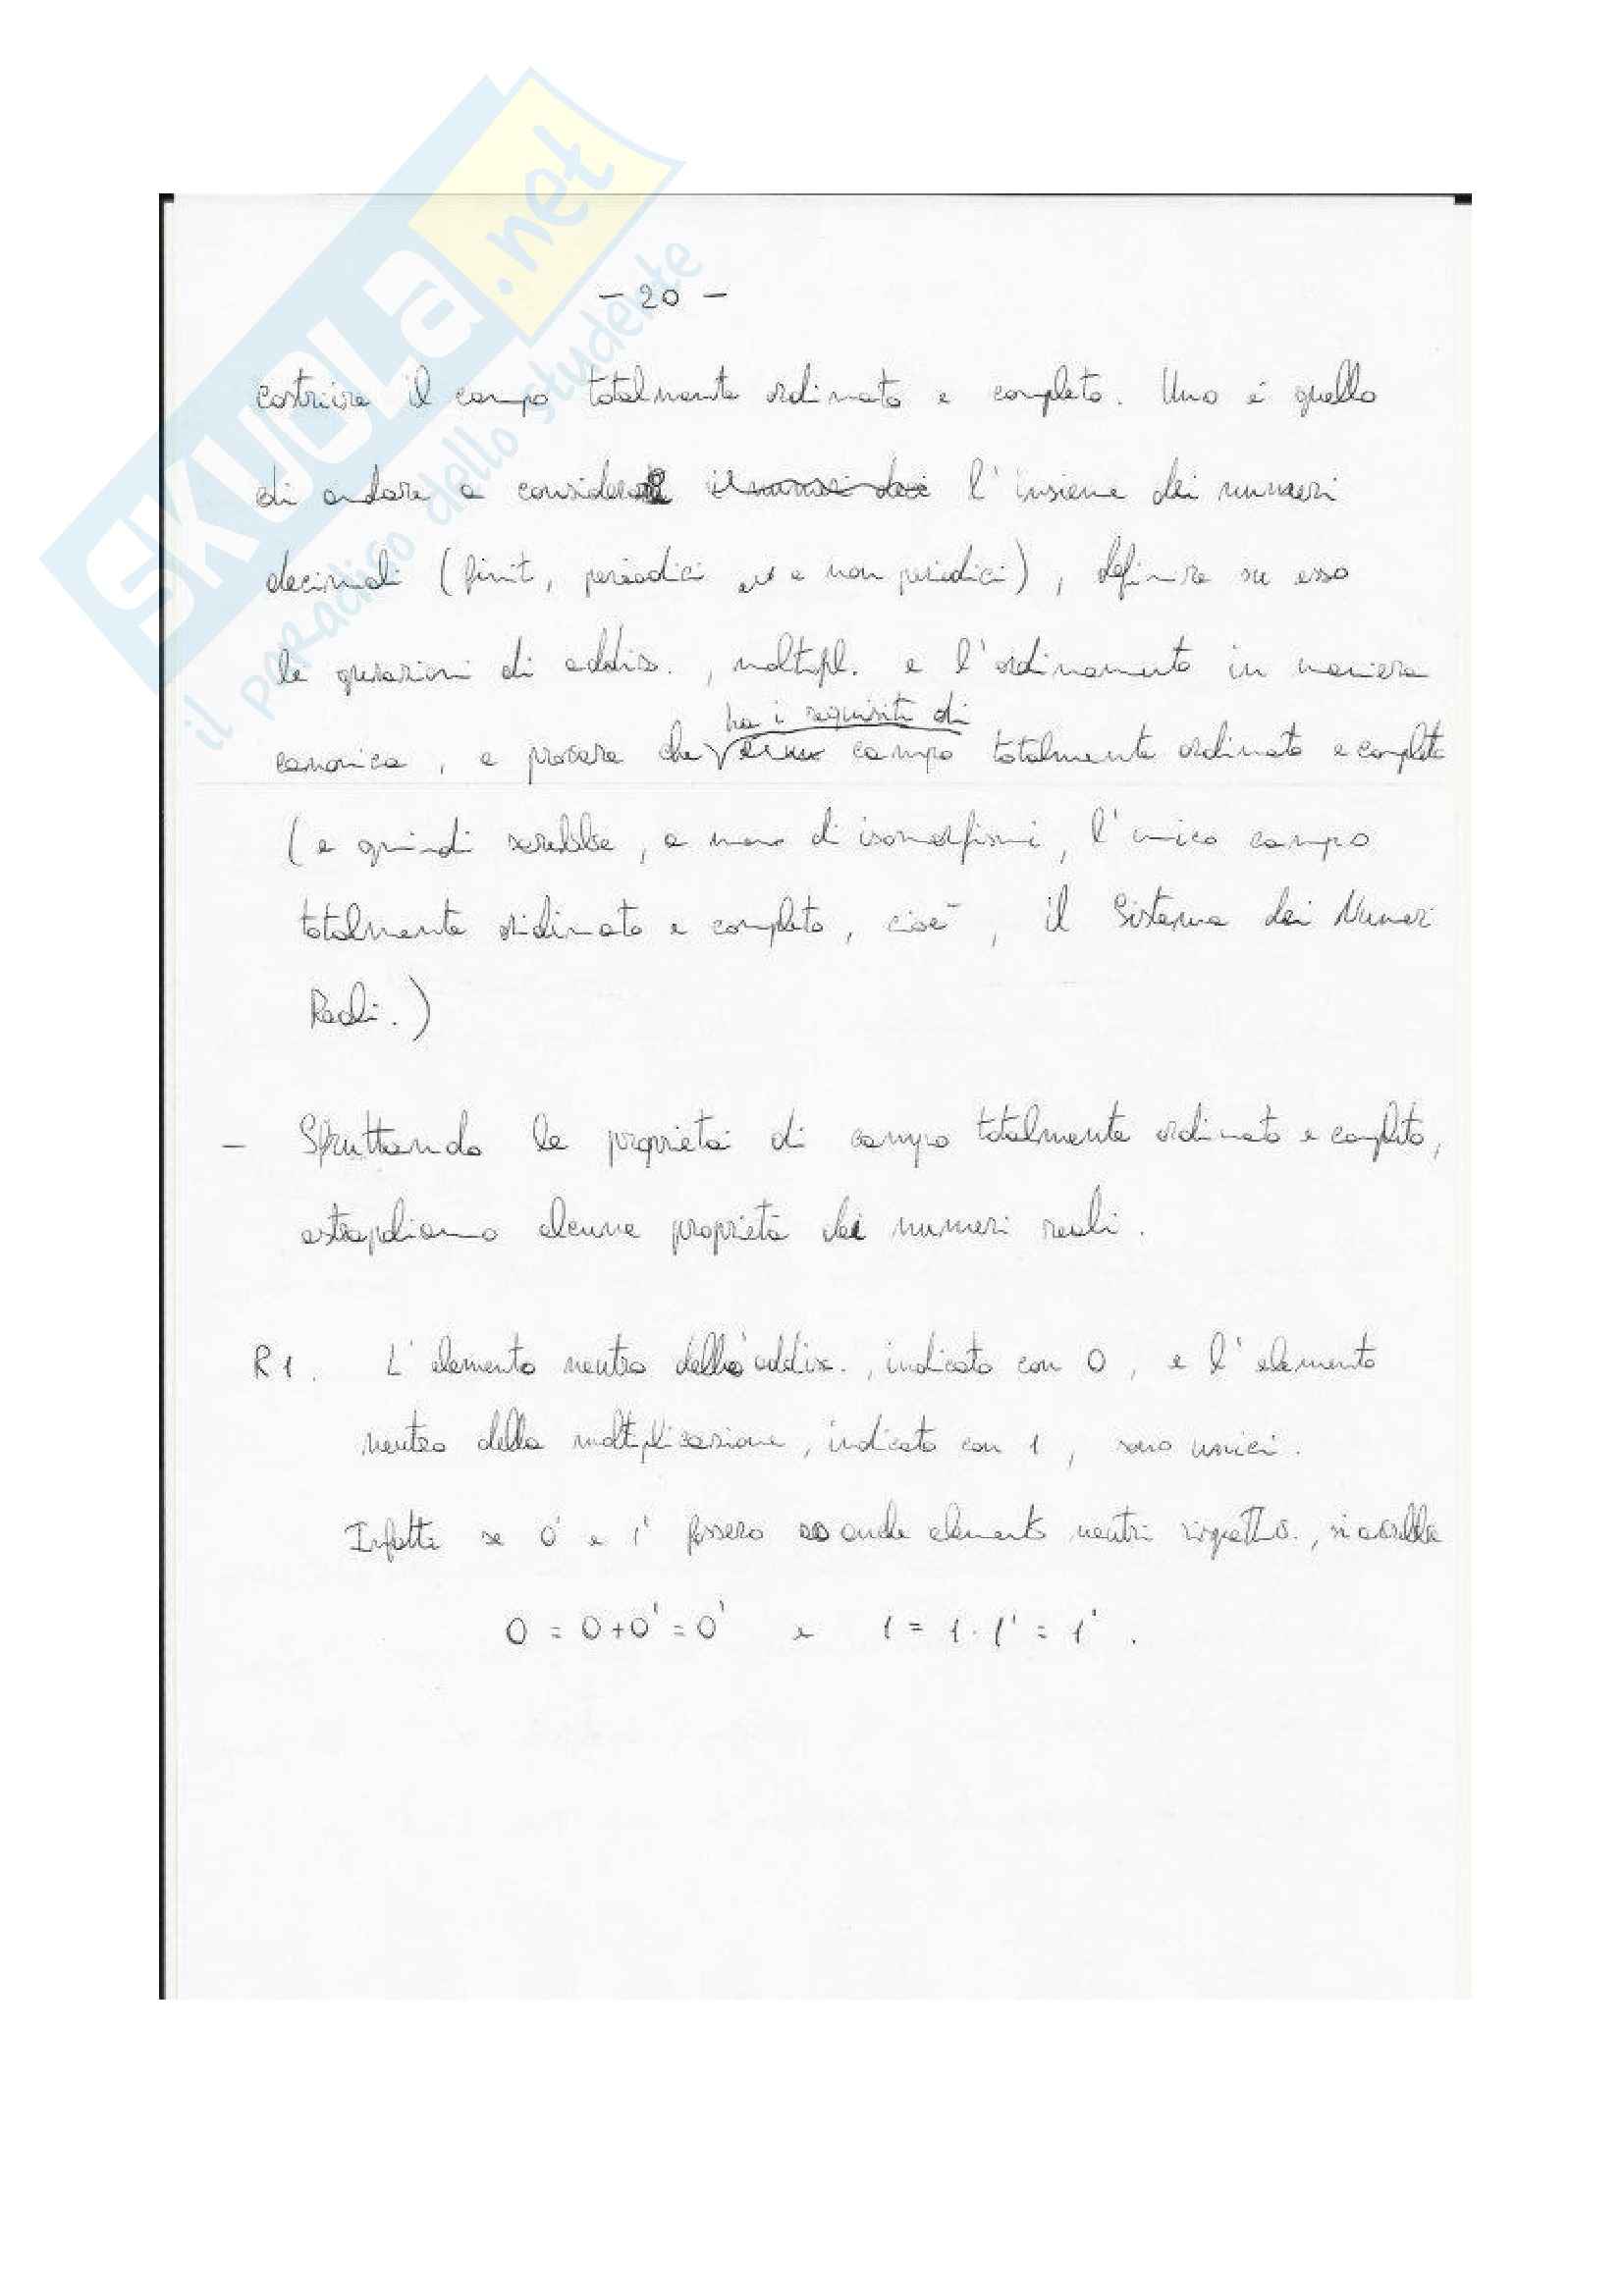 SKUOLA.net
il paradiso dello studente
- 20 -
costruire il campo totalmente ordinato e completo. Uno è quello
di andare a considerare l'insieme dei numeri
decimali (finiti, periodici e non periodici), definire su esso
le operazioni di addiz., moltipl. e l'ordinamento in maniera
ha i requisiti di
canonica, e provare che campo totalmente ordinato e completo
(e quindi sarebbe, a meno di isomorfismi, l'unico campo
totalmente ordinato e completo, cioè, il Sistema dei Numeri
Reali.)
- Sfruttando le proprietà di campo totalmente ordinato e completo,
estrapoliamo alcune proprietà dei numeri reali.
R1. L'elemento neutro dell'addiz., indicato con 0, e l'elemento
neutro della moltiplicazione, indicato con 1, sono unici.
Infatti se 0' e 1' fossero anche elementi neutri rispetto., si avrebbe
0 = 0+0' = 0' e 1 = 1·1' = 1'.